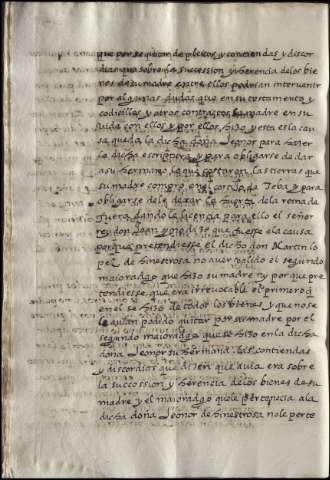 que por se quitar de pleitos y contiendas y discor
dias que sobre la succession y herencia de los bie
nes de su madre entre ellos podrian intervenir
por algunas dudas que en su testamento y
codicilles y otros contractos su madre en su
vida con ellos y por ellos hizo y esta es la cau
sa que da la dicha doña Leonor para hazer
la dicha escriptura y para obligarse de dar
a su hermano las tierras que
su madre compro en Teba y para
obligarse de le dexar la huerta de la reina de
fuera dando le licencia para ello el señor
rey don Juan y no dize que fuesse ela causa
porque pretendiesse el dicho don Martin lo
pez de hinestrosa no aver valido el segundo
maioradgo que hizo su madre ny porque pre
tendiesse que era irrevocable el primero
en el se hizo de todos los bienes y que no se
le avian podido quitar por su madre por el
segundo maioradgo que se hizo en la dicha
doña Leonor su hermana. las contiendas
y discordias que dizen que avia era sobre
la succession y herencia de los bienes de su
madre y el maioradgo que le pertenecia a la
dicha doña Leonor de hinestrosa no le perte